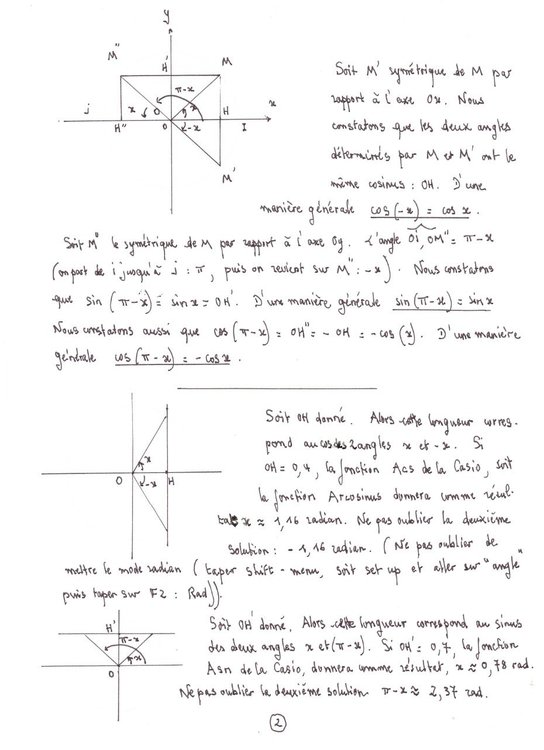 y
M"
H'
M
π-x
j
x
O
x
H"
O
-x
H
I
x
M'
Soit M' symétrique de M par
rapport à l'axe Ox. Nous
constatons que les deux angles
déterminés par M et M' ont le
même cosinus : OH. D'une
manière générale cos(-x) = cos x.
Soit M" le symétrique de M par rapport à l'axe Oy. L'angle Oi, OM" = π-x
(on part de i jusqu'à j : π, puis on revient sur M" : -x). Nous constatons
que sin (π-x) = sin x = OH'. D'une manière générale sin(π-x) = sin x
Nous constatons aussi que cos(π-x) = OH" = - OH = - cos(x). D'une manière
générale cos(π-x) = -cos x.
Soit OH donné. Alors cette longueur corres-
pond au cos des 2 angles x et -x. Si
OH = 0,4, la fonction Acs de la Casio, soit
la fonction Arcosinus donnera comme résul-
tat x ≈ 1,16 radian. Ne pas oublier la deuxième
solution : - 1,16 radian. (Ne pas oublier de
mettre le mode radian (taper shift-menu, soit set up et aller sur "angle"
puis taper sur F2 : Rad)).
x
O
-x
H
Soit OH' donné. Alors cette longueur correspond au sinus
des deux angles x et (π-x). Si OH' = 0,7, la fonction
Asn de la Casio, donnera comme résultat, x ≈ 0,78 rad.
Ne pas oublier la deuxième solution π-x ≈ 2,37 rad.
H'
π-x
x
O
2